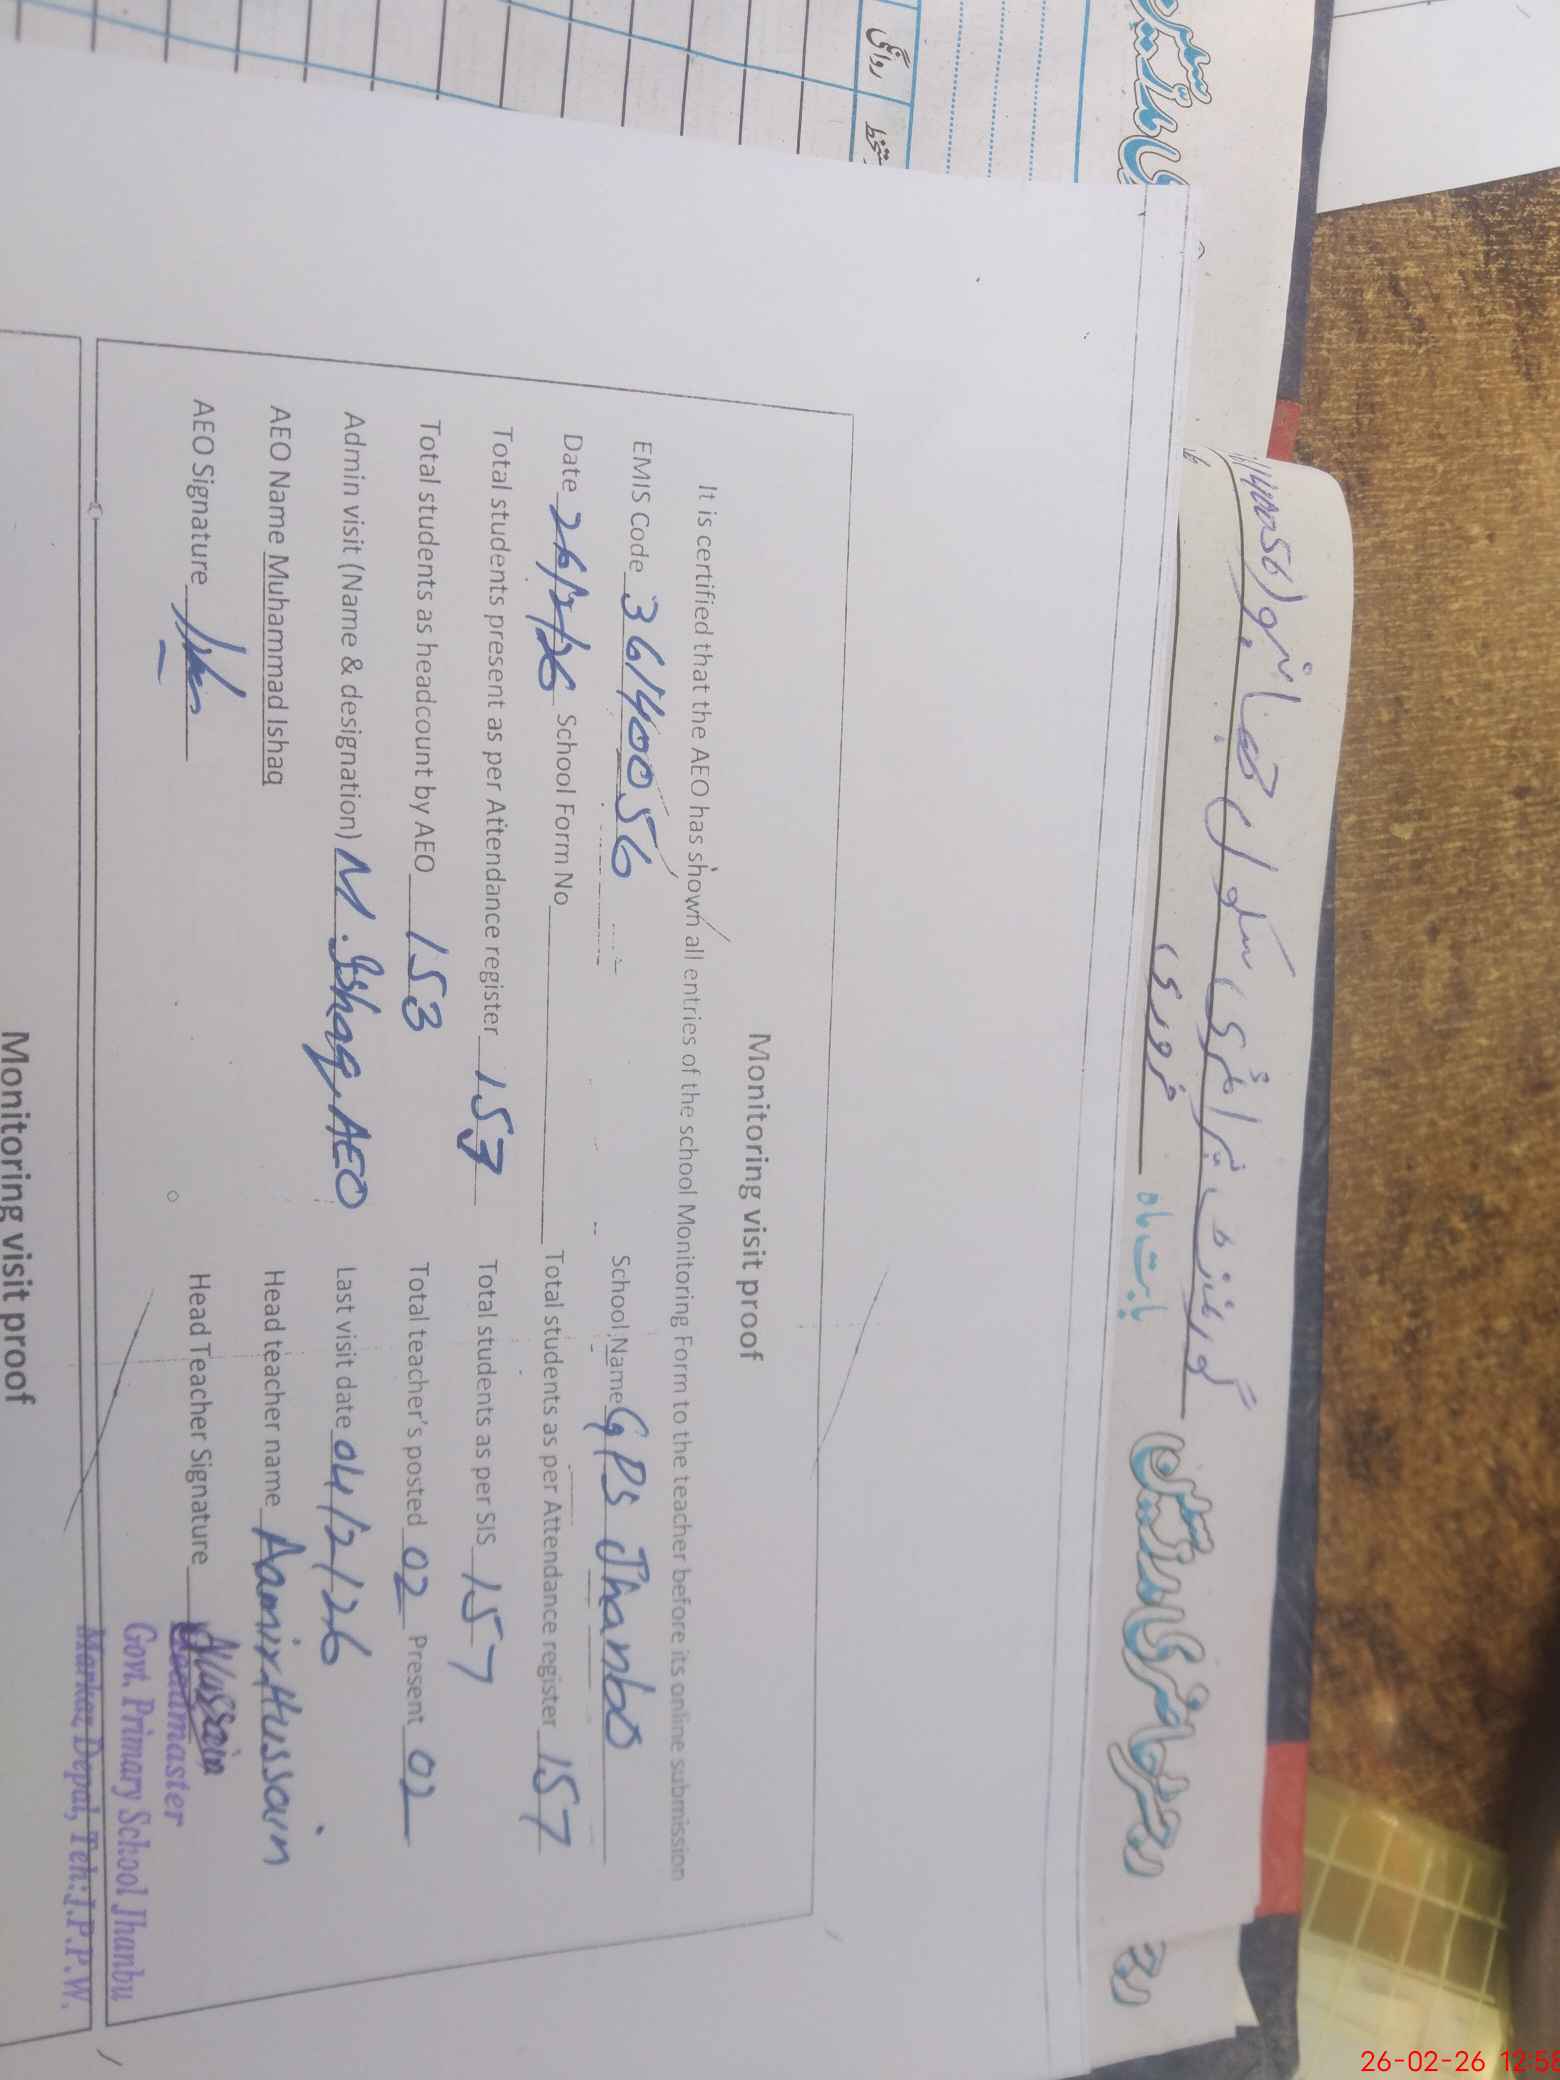 گورنمنٹ پرائمری سکول جھانبو (36140056)
بابت ماہ فروری
رجسٹر حاضری مدرسین
روانگی
دستخط
Monitoring visit proof
It is certified that the AEO has shown all entries of the school Monitoring Form to the teacher before its online submission
EMIS Code 36140056 School Name GPS Jhanbo
Date 26/2/26 School Form No Total students as per Attendance register 157
Total students present as per Attendance register 153 Total students as per SIS 157
Total students as headcount by AEO 153 Total teacher's posted 02 Present 02
Admin visit (Name & designation) M. Ishaq, AEO Last visit date 04/2/26
AEO Name Muhammad Ishaq Head teacher name Aamir Hussain
AEO Signature Head Teacher Signature Hussain
Headmaster
Govt. Primary School Jhanbu
Markaz Depal, Teh: J.P.P.W.
Monitoring visit proof
26-02-26 12:58